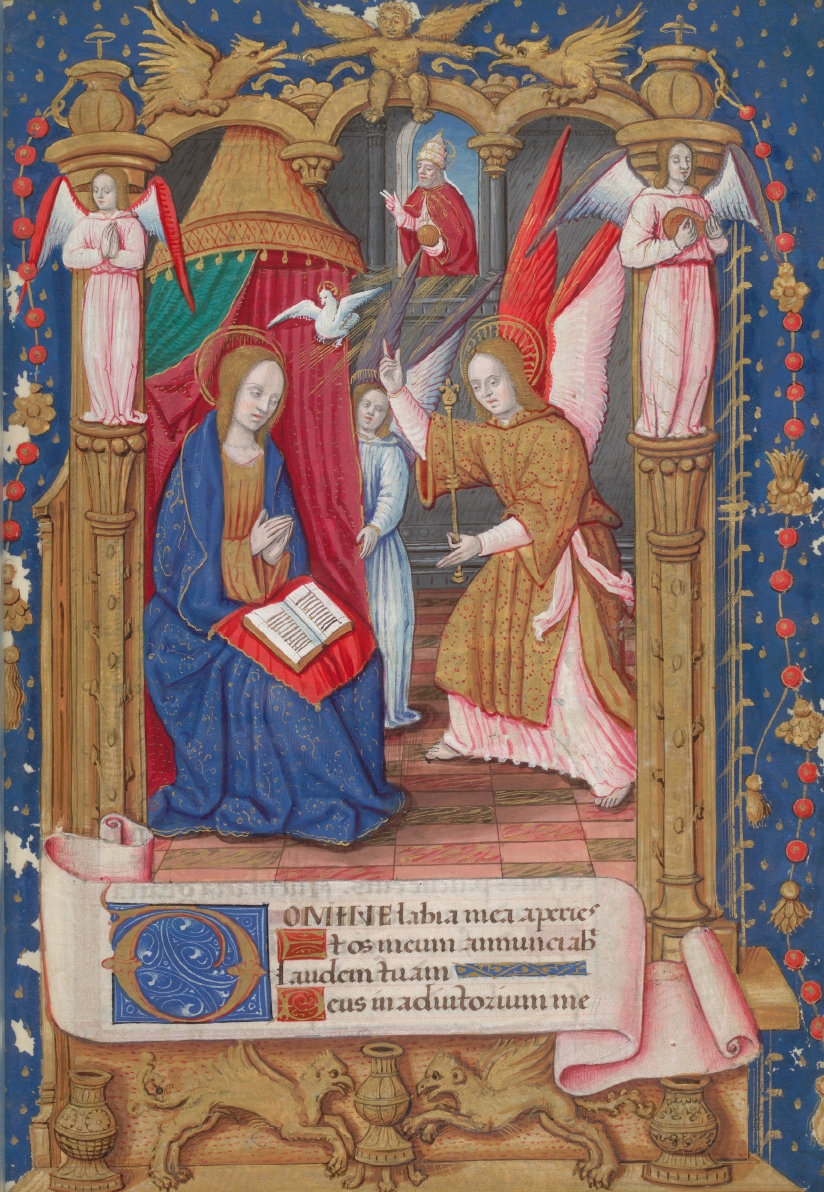 DOMINE labia mea aperies
Et os meum annunciab
laudem tuam
Deus in adiutorium me